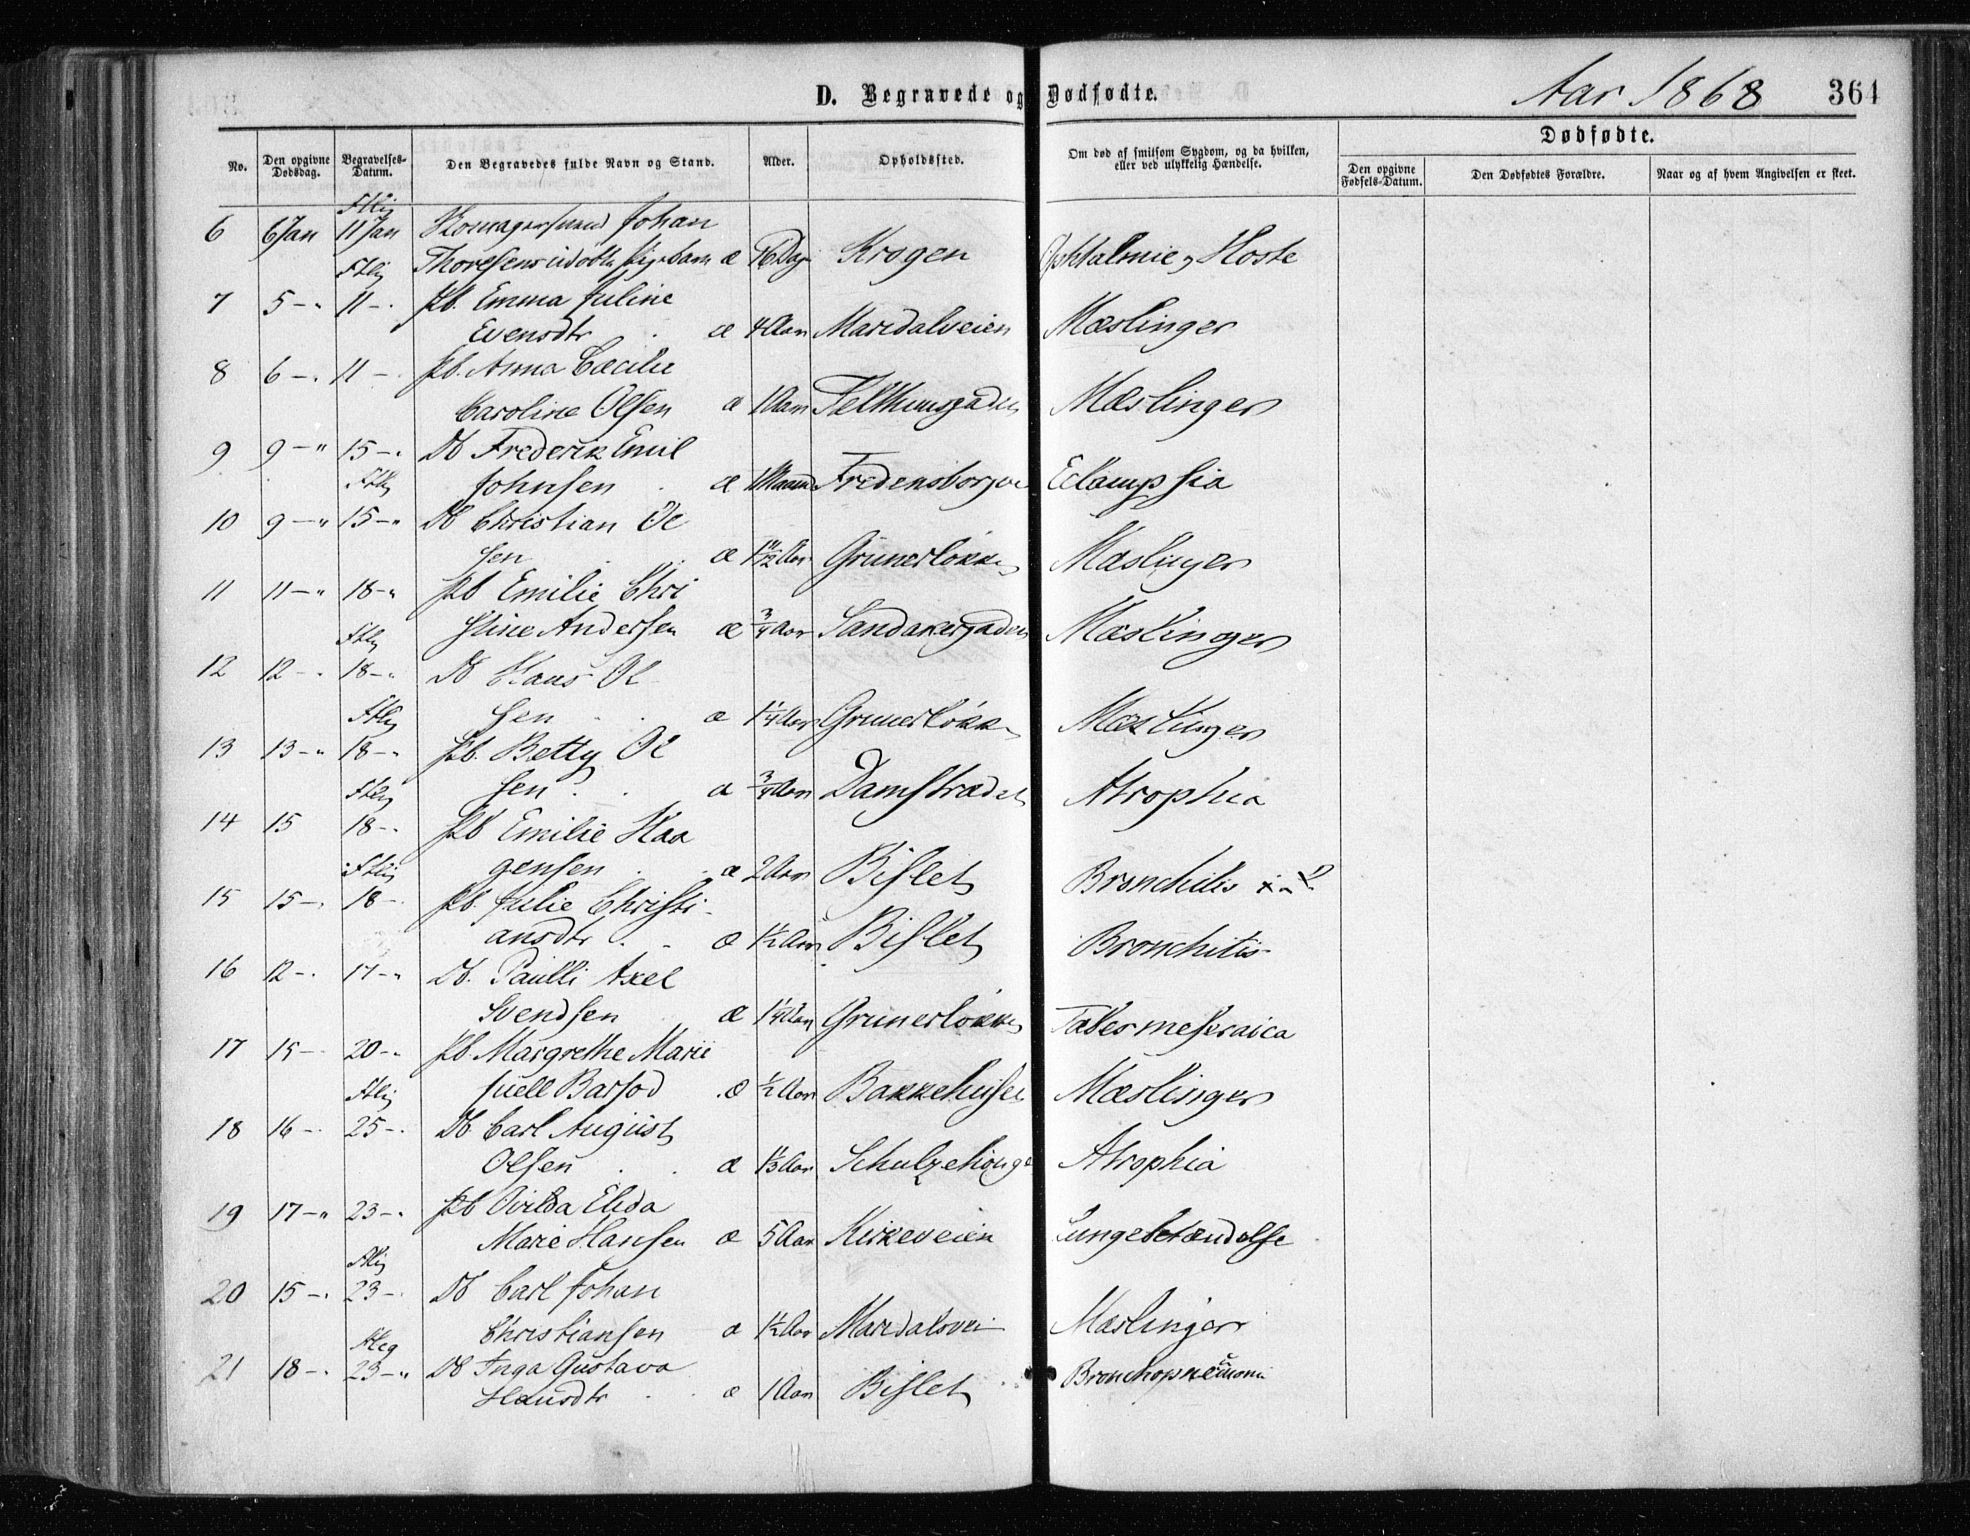 D. Begravede og Dødfødte.
Aar 1868
364
No.
Den opgivne Dødsdag.
Begravelses-Datum.
Den Begravedes fulde Navn og Stand.
Alder.
Opholdssted.
Om død af smitsom Sygdom, og da hvilken, eller ved ulykkelig Hændelse.
Dødfødte.
Den opgivne Fødsels-Datum.
Den Dødfødtes Forældre.
Naar og af hvem Angivelsen er skeet.
6 6 Jan 11 Jan Johan
Thoresens udøbte Pigebarn æ 16 Dag Krogen Ophtalmie og Hoste
7 5 - " 11 - . Pb. Emma Juline
Evensdtr æ 4 Aar Maridalveien Mæslinger
8 6 - . 11 - . Pb. Anna Cæcilie
Caroline Olsen æ 1 Aar Telthusgaden Mæslinger
9 9 - " 15 - . Db Frederik Emil
Johnsen æ 1 Maaned Fredensborgve Eclampsia
10 9 - " 15 - " Db Christian Ol
sen æ 1 11/12 Aar Grünerløkken Mæslinger
11 11 - " 18 - " Pb Emilie Chri
stine Andersen æ 3/4 Aar Sandakergaden Mæslinger
12 12 - . 18 - " Db Hans Ol
sen æ 1 1/4 Aar Grünerløkk Mæslinger
13 13 - " 18 - " Pb. Betty Ol
sen æ 3/4 Aar Damstrædet Atrophia
14 15 18 - . Pb Emilie Haa
gensen æ 2 Aar Bislet Bronchitis
15 15 - . 18 - Pb. Julie Christi-
ansdtr æ 1 1/2 Aar Bislet Bronchitis
16 12 - . 17 - " Db. Paulli Axel
Svendsen æ 1 1/4 Aar Grünerløkken Tabes meseraica
17 15 - 20 - . Pb. Margrethe Marie
Juell Barfod æ 1/2 Aar Bakkehuset Mæslinger
18 16 - . 25 - . Db Carl August
Olsen æ 1 1/3 Aar Schulzehouge Atrophia
19 17 - " 23 - . Pb Ovilda Elida
Marie Hansen æ 5 Aar Kirkeveien Lungebetændelse
20 15 - . 23 - Db Carl Johan
Christiansen æ 1 1/2 Aar Maridalsvei Mæslinger
21 18 - . 23 - " Db Inga Gustava
Hansdtr æ 1 Aar Bislet Bronchopneumoni